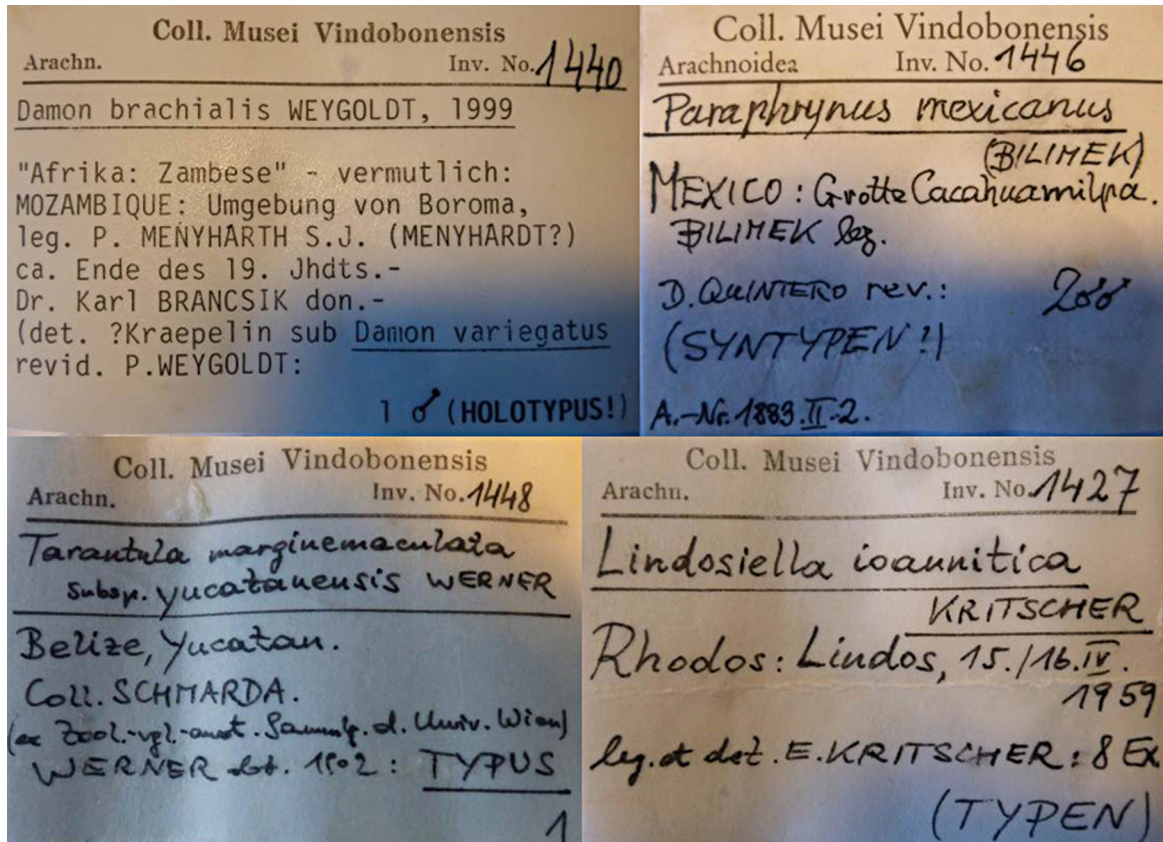 Coll. Musei Vindobonensis
Arachn. Inv. No. 1440
Damon brachialis WEYGOLDT, 1999
"Afrika: Zambese" - vermutlich:
MOZAMBIQUE: Umgebung von Boroma,
leg. P. MENYHARTH S.J. (MENYHARDT?)
ca. Ende des 19. Jhdts.-
Dr. Karl BRANCSIK don.-
(det. ?Kraepelin sub Damon variegatus
revid. P.WEYGOLDT:
1 ♂ (HOLOTYPUS!)
Coll. Musei Vindobonensis
Arachnoidea Inv. No. 1446
Paraphrynus mexicanus
(BILIMEK)
MEXICO: Grotte Cacahuamilpa.
BILIMEK leg.
D. QUINTERO rev.: 2♂♂
(SYNTYPEN!)
A.-Nr. 1883.II.2.
Coll. Musei Vindobonensis
Arachn. Inv. No. 1448
Tarantula marginemaculata
subsp. yucatanensis WERNER
Belize, Yucatan.
Coll. SCHMARDA.
(ex Zool.-vgl.-anat. Sammlg. d. Univ. Wien)
WERNER det. 1902: TYPUS
1
Coll. Musei Vindobonensis
Arachn. Inv. No. 1427
Lindosiella ioannitica
KRITSCHER
Rhodos: Lindos, 15./16.IV.
1959
leg. et det. E. KRITSCHER: 8 Ex
(TYPEN)